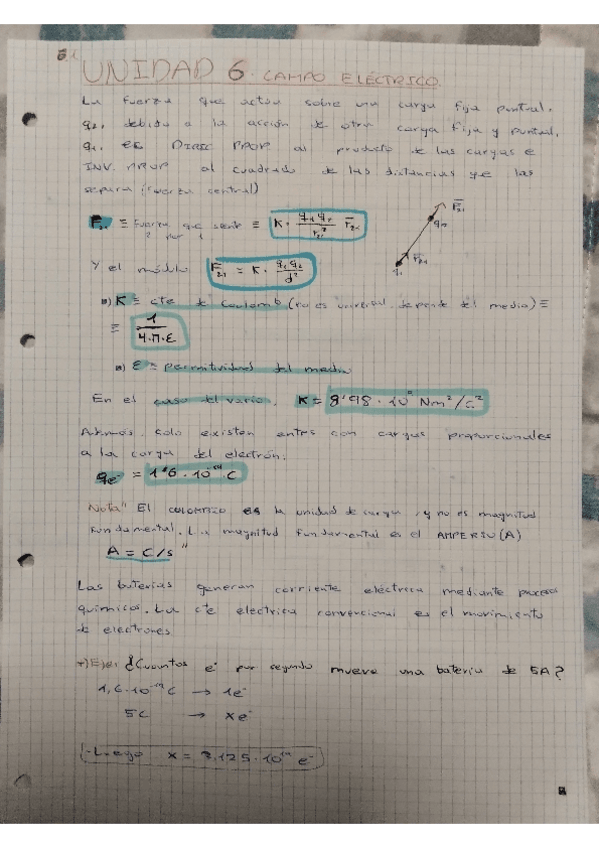 6.1
UNIDAD 6. CAMPO ELÉCTRICO.
La fuerza que actúa sobre una carga fija puntual,
q₂, debido a la acción de otra carga fija y puntual,
q₁, es DIREC PROP al producto de las cargas e
INV. PROP al cuadrado de las distancias que las
separa (fuerza central)
F₂₁ ≡ Fuerza que siente 2 por 1 ≡ K · q₁q₂/r₂₁² r̄₂₁
F̄₂₁
q₂
r̄₂₁
q₁
Y el módulo F₂₁ = K · q₁q₂/d²
K ≡ cte de Coulomb (no es universal, depende del medio) ≡
≡ 1/4·π·ε
ε ≡ permitividad del medio
En el caso del vacío, K = 8'98 · 10⁹ Nm²/c²
Además, solo existen entes con cargas proporcionales
a la carga del electrón.
qe⁻ = 1'6 · 10⁻¹⁹ C
Nota" El colombio es la unidad de carga, y no es magnitud
fundamental. La magnitud fundamental es el AMPERIO (A)
A = C/s "
Las baterías generan corriente eléctrica mediante procesos
químicos. La cte electrica convencional es el movimiento
de electrones
Eje: ¿Cuantos e⁻ por segundo mueve una bateria de 5A?
1,6·10⁻¹⁹ C → 1e⁻
5C → xe⁻
Luego x = 3,125 · 10¹⁹ e⁻